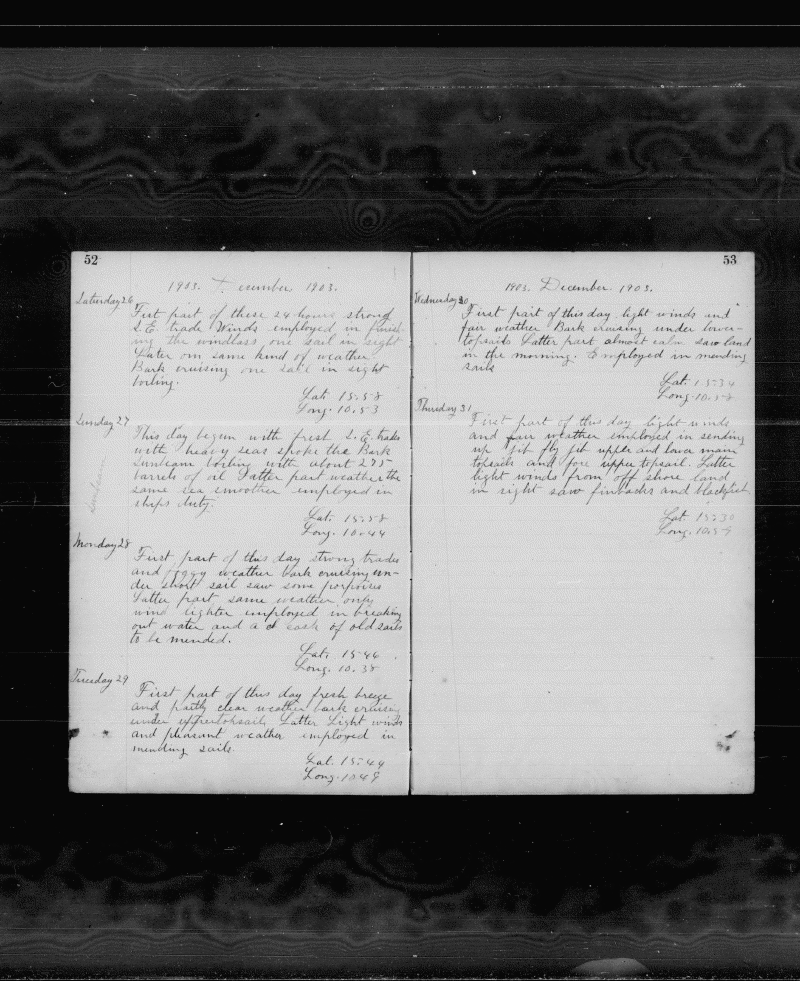 52
1903. December 1903.
Saturday 26
First part of these 24 hours strong
S.E. trade Winds employed in finish-
ing the windlass one sail in sight
Later on same kind of weather
Bark cruising one sail in sight
boiling.
Lat. 15.58
Long. 10.53
Sunday 27
This day begun with fresh S.E. trades
with heavy seas spoke the Bark
Sunbeam boiling with about 275
barrels of oil Latter part weather the
same sea smoother employed in
ships duty.
Sunbeam
Lat. 15.58
Long. 10.44
Monday 28
First part of this day strong trades
and foggy weather bark cruising un-
der short sail saw some porpoises
Latter part same weather only
wind lighter employed in breaking
out water and a cask of old sails
to be mended.
Lat. 15.46
Long. 10.38
Tuesday 29
First part of this day fresh breeze
and partly clear weather bark cruising
under uppertopsails Latter Light winds
and pleasant weather employed in
mending sails.
Lat. 15.44
Long. 10.49
53
1903. December 1903.
Wednesday 30
First part of this day light winds and
fair weather Bark cruising under lower-
topsails Latter part almost calm saw land
in the morning. Employed in mending
sails
Lat. 15.34
Long. 10.58
Thursday 31
First part of this day light winds
and fair weather employed in sending
up jib fly jib upper and lower main
topsails and fore upper topsail. Latter
light winds from off shore land
in sight saw finbacks and blackfish
Lat. 15.30
Long. 10.59